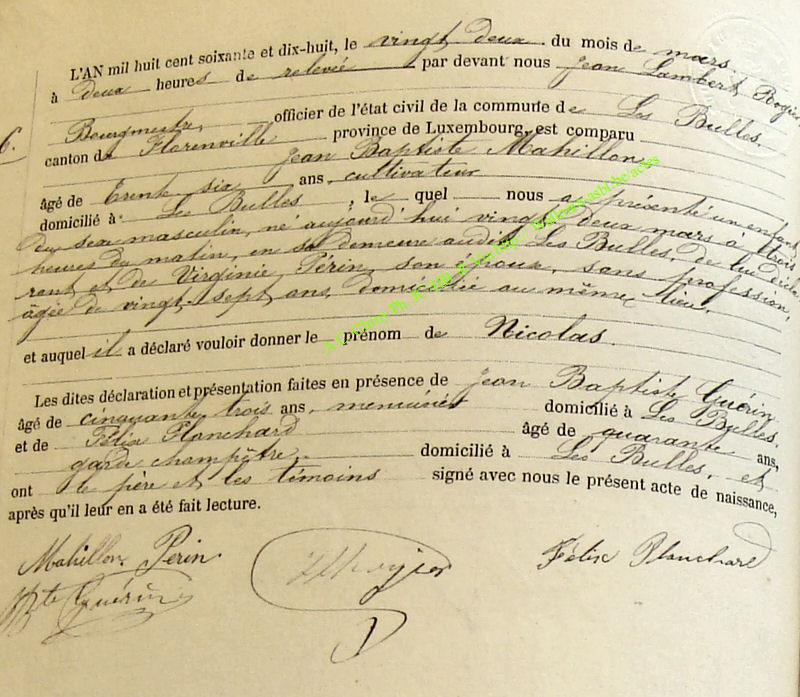 L'AN mil huit cent soixante et dix-huit, le vingt deux du mois de mars
à deux heures de relevée par devant nous Jean Lambert Rogier
Bourgmestre, officier de l'état civil de la commune de Les Bulles.
6.
canton de Florenville province de Luxembourg, est comparu
Jean Baptiste Mahillon
âgé de trente six ans, cultivateur
domicilié à Les Bulles, le quel nous a présenté un enfant
du sexe masculin, né aujourd'hui vingt deux mars à trois
heures du matin, en sa demeure audit Les Bulles, de lui décla
rant et de Virginie Périn, son épouse, sans profession,
âgée de vingt-sept ans, domiciliée au même lieu.
et auquel il a déclaré vouloir donner le prénom de Nicolas.
Les dites déclaration et présentation faites en présence de Jean Baptiste Guérin
âgé de cinquante trois ans, menuisier domicilié à Les Bulles.
et de Félix Planchard âgé de quarante ans,
garde champêtre. domicilié à Les Bulles, et
ont le père et les témoins signé avec nous le présent acte de naissance,
après qu'il leur en a été fait lecture.
Mahillon Périn.
Félix Planchard
Bte Guérin